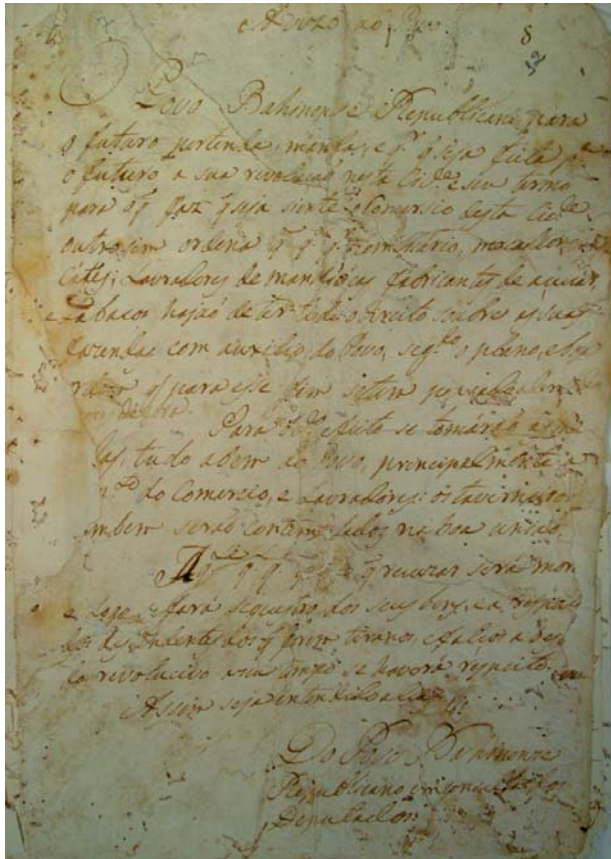 Avizo ao Povo 8
32
Povo Bahinense e Republicano para
o futuro pertende, manda, e qr q seja feita pa
o futuro a sua revolucaõ nesta Cide e seu termo
para o q faz q seja siente o Comersio desta Cide
outrosim ordena q q qr Comisario,
Lavradores de mandiócas fabricantes de acucar,
e Tabacos hajaõ de ter todo o direito sobre as suas
fazendas com auxilio do Povo, segdo o plano, e boa
q para esse fim se tem
Para o dto efeito se tomáraõ as me
das, tudo a bem do Povo, principalmente a
do Comercio, e Lavradores: os taverneiros
mbem seraõ contemplados na boa uniaõ
q q qr q recuzar será mor
e logo se fará sequestro dos seus bens, e a respei
q forem tiranos, e falços a des
ta revolucaõ a seu tempo se haverá respeito.
Assim seja intendido alias
Do Povo Bahinense
Republicano em consulta dos
Deputados